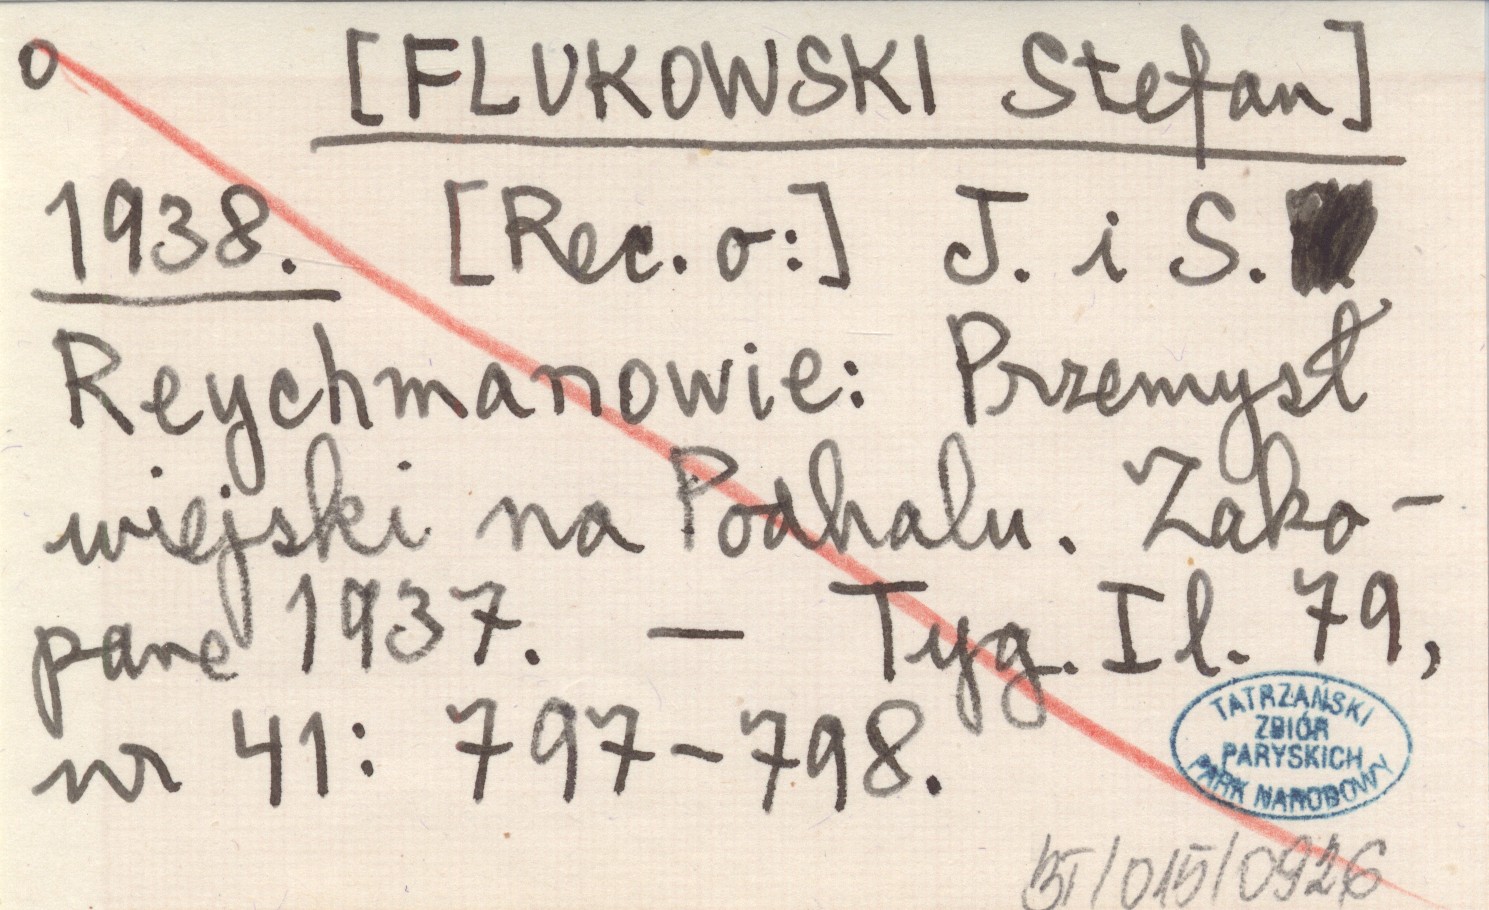 o [FLUKOWSKI Stefan]
1938. [Rec. o:] J. i S.
Reychmanowie: Przemysł
wiejski na Podhalu. Zako-
pane 1937. — Tyg. Il. 79,
nr 41: 797-798.
TATRZAŃSKI
ZBIÓR
PARYSKICH
PARK NARODOWY
BT/015/0926